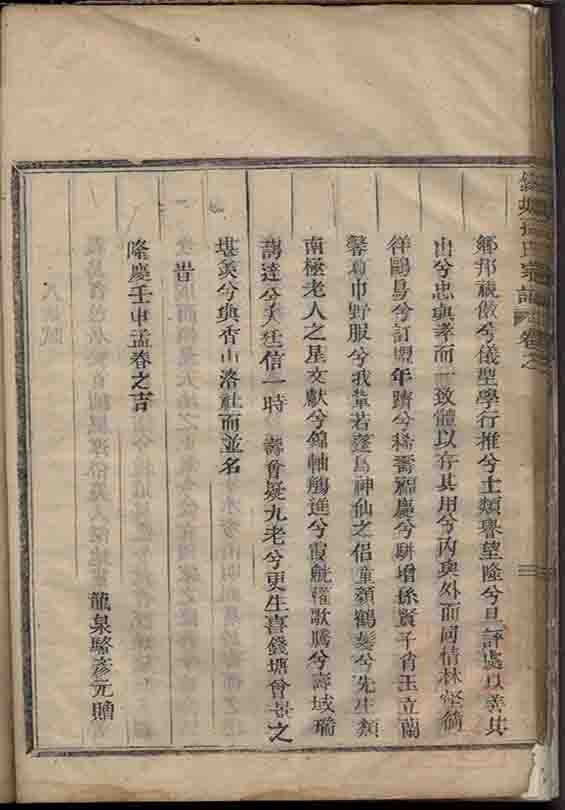 鄉邦視傚兮儀型學行推兮士類譽望隆兮旦評處以善其
出兮忠與孝而一致體以存其用兮內與外而同情林壑徜
徉鷗易兮訂盟年躋兮稀壽福慶兮駢增孫賢子肖玉立蘭
馨葛巾野服兮我輩若蓬島神仙之侶童顏鶴髮兮先生類
南極老人之星文獻兮錦軸觴進兮霞觥懽歌騰兮壽域瑞
藹達兮天廷信一時壽會疑九老兮更生喜錢塘會景之
堪羨兮與香山洛社而並名
旹
隆慶壬申孟春之吉
龍泉駱彥元贈
氏宗譜
卷之